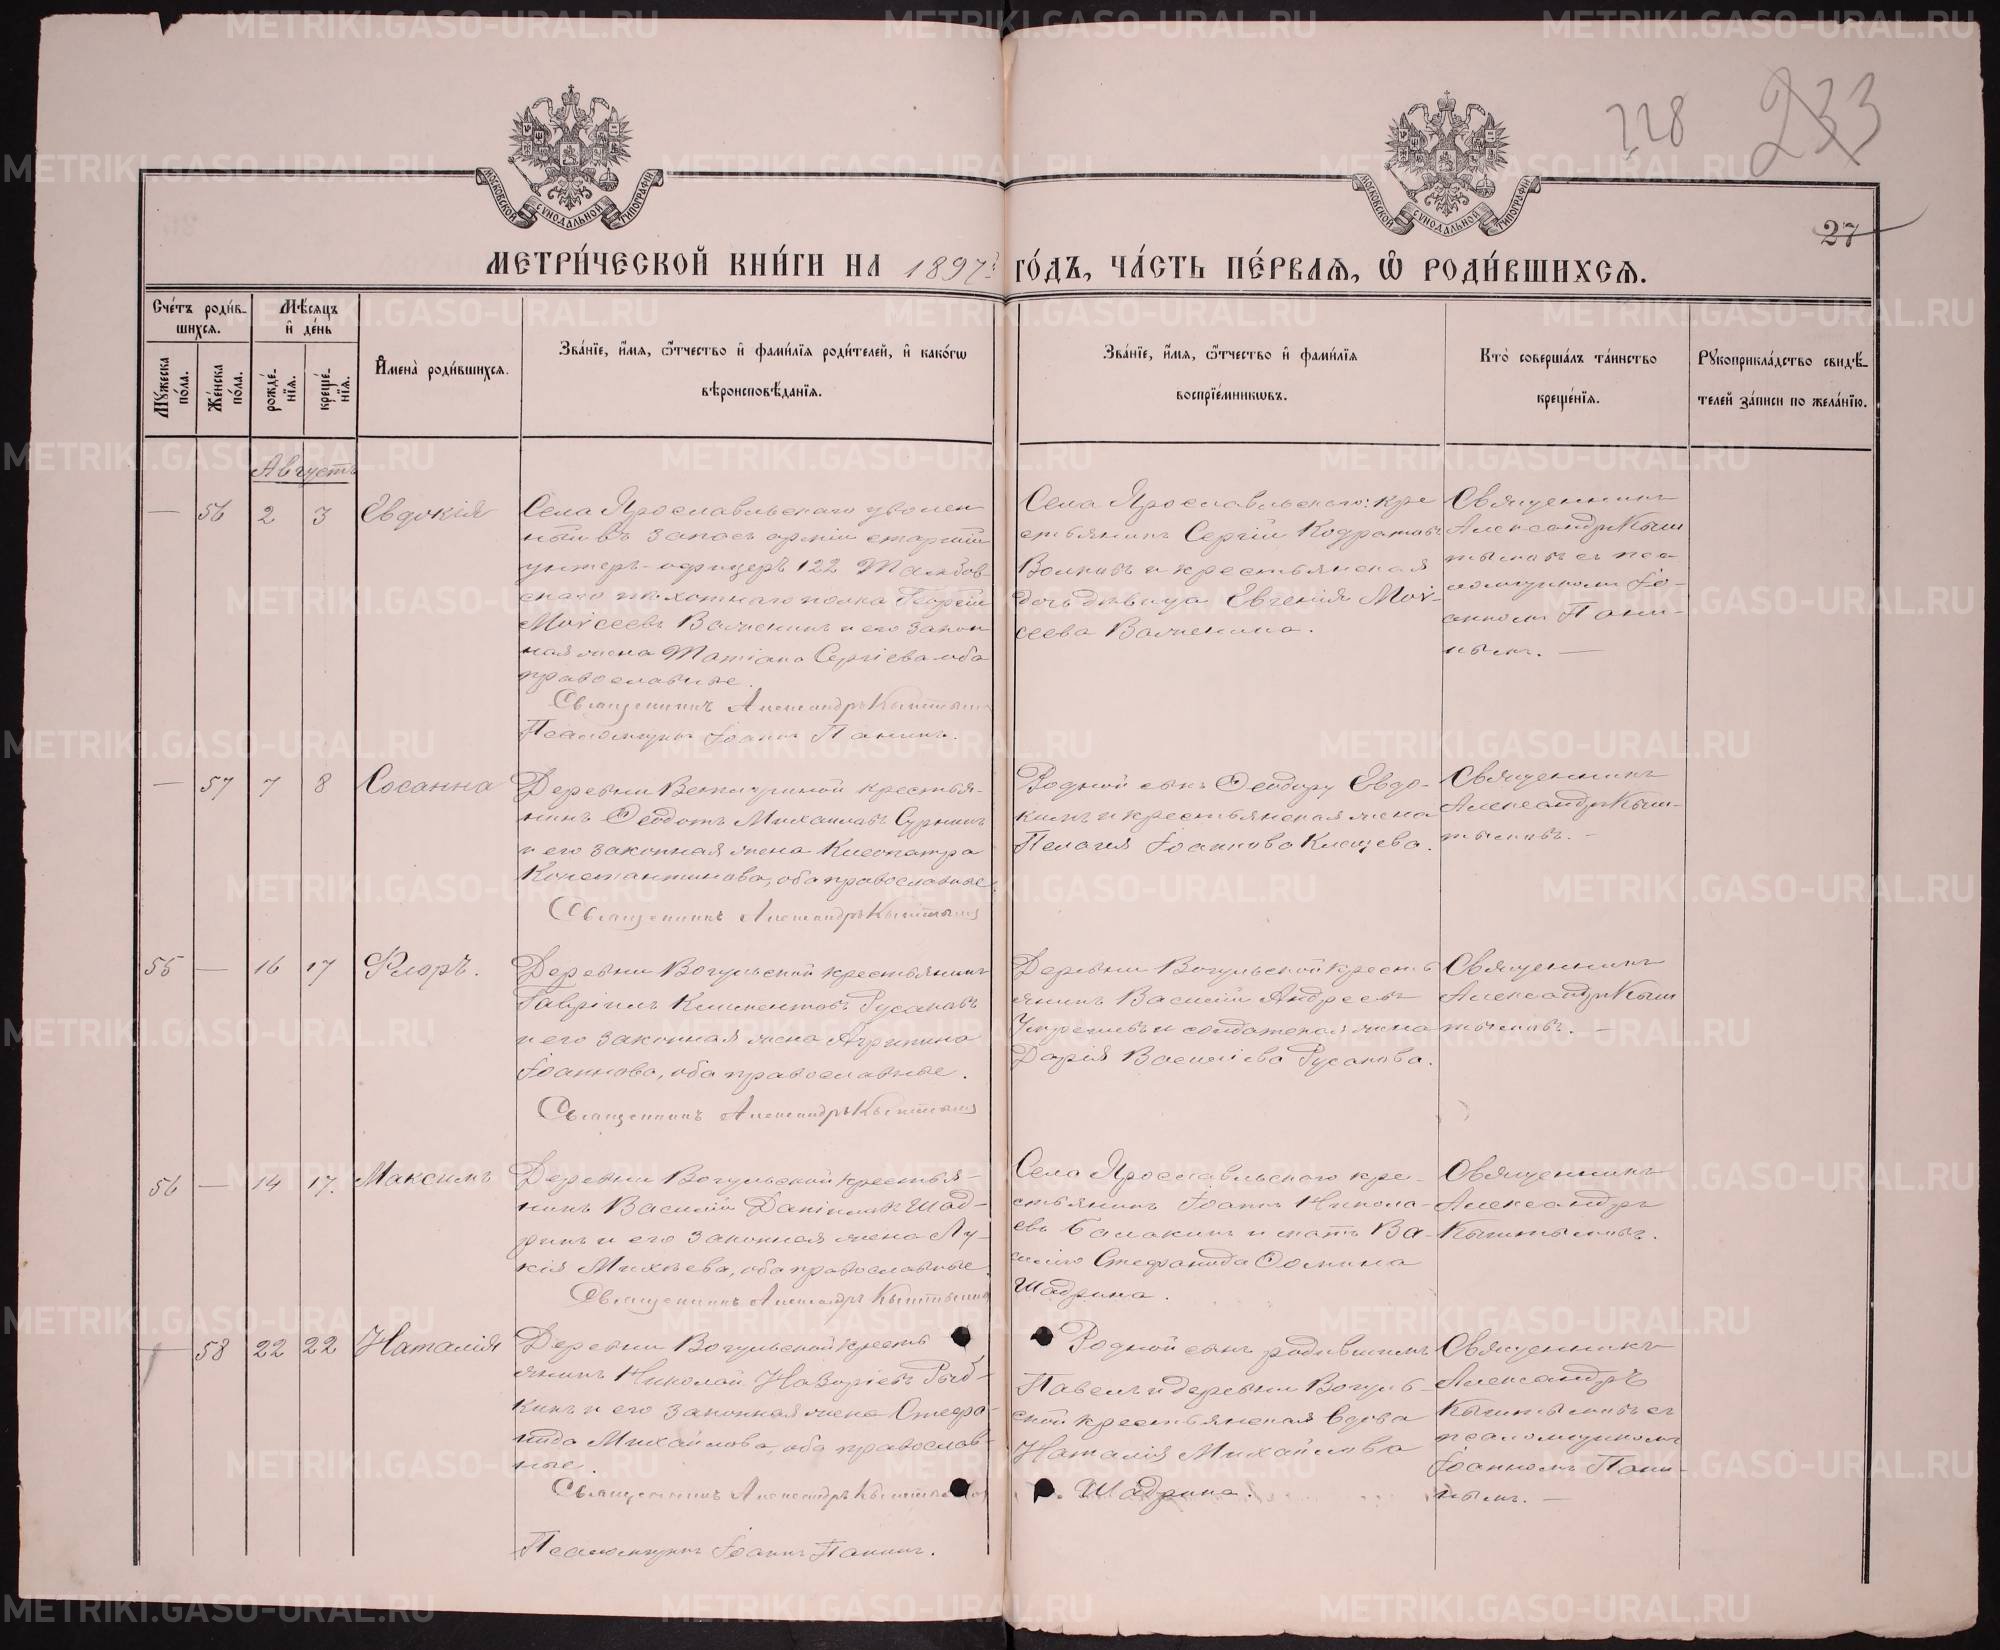 228 233
27
МОСКОВСКОЙ СѴНОДАЛЬНОЙ ТИПОГРАФІИ
МОСКОВСКОЙ СѴНОДАЛЬНОЙ ТИПОГРАФІИ
МЕТРИ́ЧЕСКОЙ КНИ́ГИ НА 1897й ГО́ДЪ, ЧА́СТЬ ПЕ́РВАѦ, Ѽ РОДИ́ВШИХСѦ.
Сче́тъ роди́в-
шихсѧ.
Мѣ́сѧцъ
и҆ де́нь
Мꙋ́жеска
по́ла.
Же́нска
по́ла.
рожде́-
нїѧ.
креще́-
нїѧ.
И҆мена̀ роди́вшихсѧ.
Зва́нїе, и҆́мѧ, ѻ҆́тчество и҆ фами́лїѧ роди́телей, и҆ како́гѡ
вѣроисповѣ́данїѧ.
Зва́нїе, и҆́мѧ, ѻ҆́тчество и҆ фами́лїѧ
воспрїе́мникѡвъ.
Кто̀ соверша́лъ та́инство
креще́нїѧ.
Рꙋкоприкла́дство свидѣ́-
телей за́писи по жела́нїю.
Августъ
— 56 2 3 Евдокія
Села Ярославльскаго уволен
ный въ запасъ арміи старшій
унтеръ-офицеръ 122 Тамбов-
скаго пѣхотнаго полка Георгій
Моѵсеевъ Валченинъ и его закон
ная жена Татіана Сергіева оба
православные.
Священникъ Александръ Кыштымовъ
Псаломщикъ Іоаннъ Панинъ.
Села Ярославльскаго: кре
стьянинъ Сергій Кодратовъ
Волковъ и крестьянская
дочь дѣвица Евгенія Моѵ-
сеева Валченина.
Священникъ
Александръ Кыш
тымовъ съ пса-
ломщикомъ Іо-
анномъ Пани-
нымъ. —
— 57 7 8 Сосанна
Деревни крестья-
нинъ Ѳеодотъ Михаиловъ Сурнинъ
и его законная жена Клеопатра
Константинова, оба православные
Священникъ Александръ Кыштымовъ
Родной сынъ Ѳеодору Евдо-
кимъ и крестьянская жена
Пелагія Іоаннова Клещева.
Священникъ
Александръ Кыш-
тымовъ. —
55 — 16 17 Флоръ.
Деревни Вогульской крестьянинъ
Гавріилъ Климентовъ Русаковъ
и его законная жена Агрипина
Іоаннова, оба православные.
Священникъ Александръ Кыштымовъ
Деревни Вогульской кресть
янинъ Василій Андреевъ
и солдатская жена
Дарія Василіева Русакова.
Священникъ
Александръ Кыш
тымовъ. —
56 — 14 17. Максимъ
Деревни Вогульской крестья-
нинъ Василій Даніиловъ Шад-
ринъ и его законная жена Лу-
кія Михѣева, оба православные.
Священникъ Александръ Кыштымовъ
Села Ярославльскаго кре-
стьянинъ Іоаннъ Никола-
евъ Балакинъ и мать Ва-
силію Стефанида Ѳомина
Шадрина.
Священникъ
Александръ
Кыштымовъ.
— 58 22 22 Наталія
Деревни Вогульской кресть
янинъ Николай Назаріевъ Рыб-
кинъ и его законная жена Стефа-
нида Михайлова, оба православ-
ные.
Священникъ Александръ Кыштымовъ
Псаломщикъ Іоаннъ Панинъ.
Родной сынъ родившимъ
Павелъ и деревни Вогуль-
ской крестьянская вдова
Наталія Михайлова
Шадрина.
Священникъ
Александръ
Кыштымовъ съ
псаломщикомъ
Іоанномъ Пани-
нымъ. —
METRIKI.GASO-URAL.RU